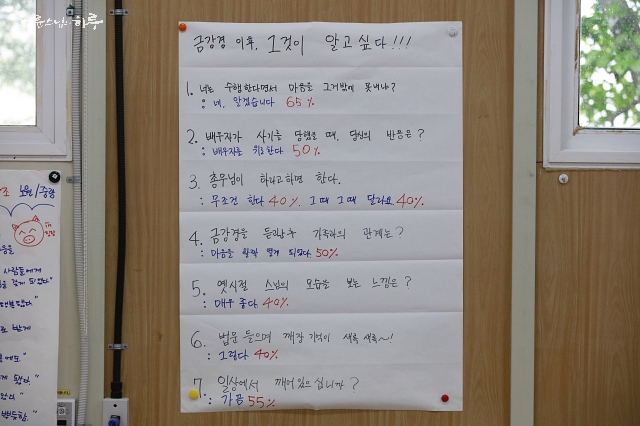 스님의 하루
금강경 이후, 그것이 알고싶다!!!
1. 너는 수행한다면서 마음을 그거밖에 못내나?
: 네, 알겠습니다 65%
2. 배우자가 사기를 당했을 때, 당신의 반응은?
: 배우자를 위로한다 50%
3. 총무님이 하라고하면 한다.
: 무조건 한다 40%, 그때 그때 달라요 40%
4. 금강경을 듣고난 후 가족과의 관계는?
: 마음을 활짝 열게 되었다. 50%
5. 옛시절 스님의 모습을 보는 느낌은?
: 매우 좋다. 40%
6. 법문 들으며 깨장 기억이 새록새록~!
: 그렇다. 40%
7. 일상에서 깨어있으십니까?
: 가끔 55%